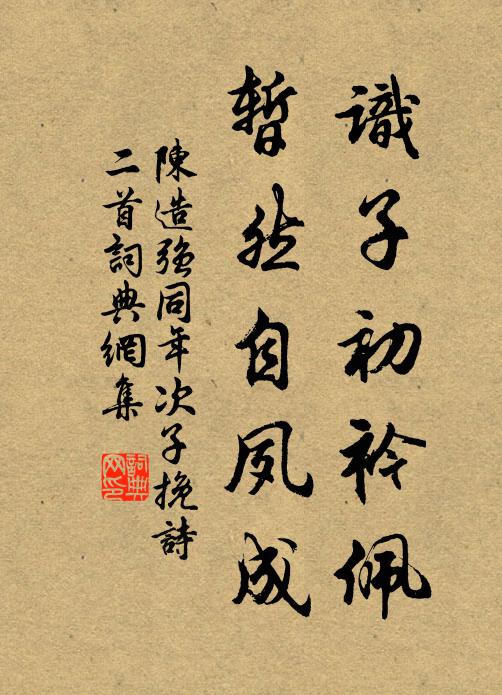 識子初衿佩
暫然自夙成
陳造強同年次子挽詩
二首詞典網集
詞典
网印